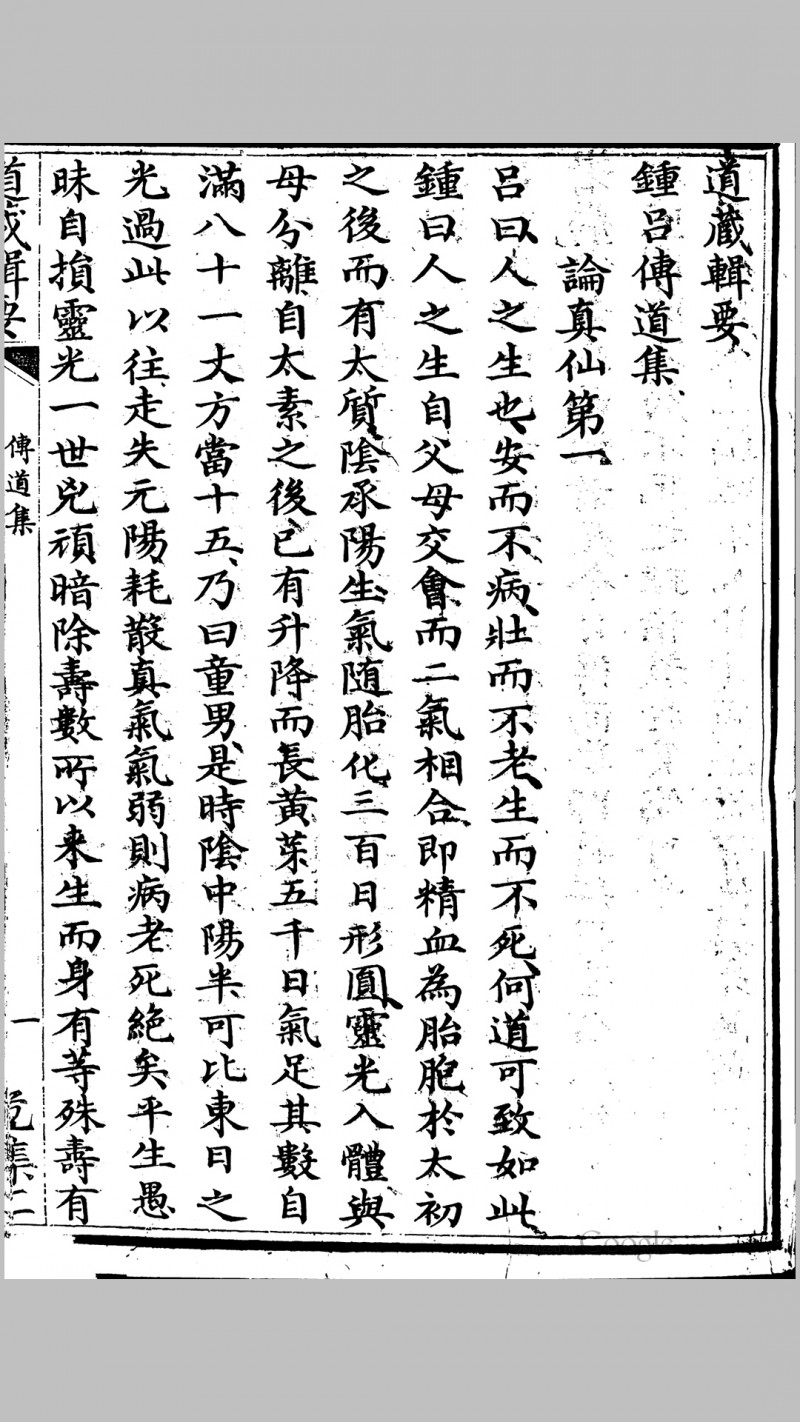 道藏輯要
鍾呂傳道集
論真仙第一
呂曰人之生也安而不病壯而不老生而不死何道可致如此
鍾曰人之生自父母交會而二氣相合即精血為胎胞於太初
之後而有太質陰承陽生氣随胎化三百日形圓靈光入體與
母分離自太素之後已有升降而長黃芽五千日氣足其數自
滿八十一丈方當十五乃曰童男是時陰中陽半可比東日之
光過此以往走失元陽耗散真氣氣弱則病老死絕矣平生愚
昧自損靈光一世兇頑暗除壽數所以来生而身有等殊壽有
道藏輯要
傳道集
一
集二
Google